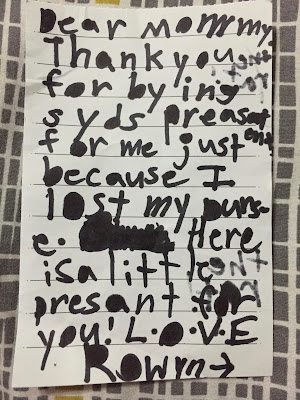 Dear mommy
Thank you
for bying
syds preasent
for me just
because I
lost my purs-
e. Here
is a little
presant for
you! L.O.V.E
Rowyn→